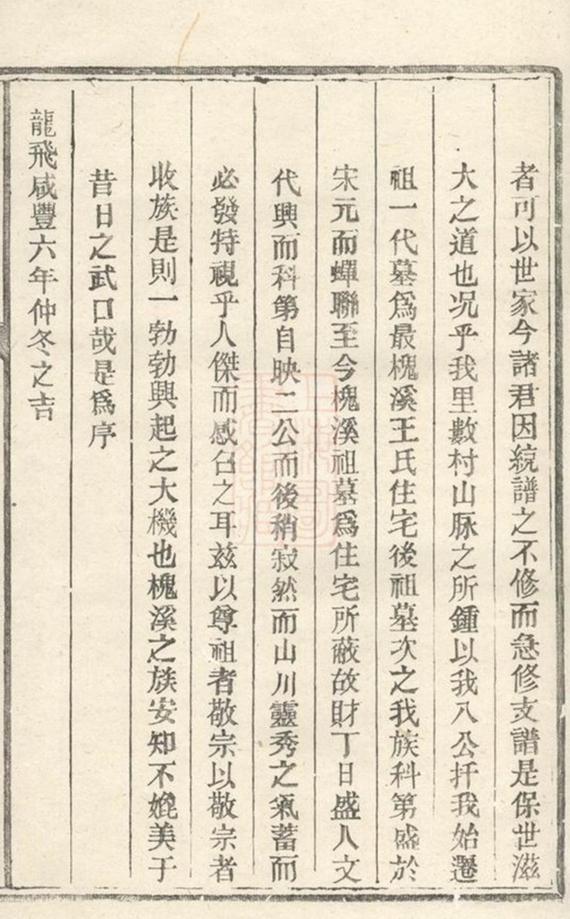 者可以世家今諸君因統譜之不修而急修支譜是保世滋
大之道也况乎我里數村山脉之所鍾以我八公扦我始遷
祖一代墓爲最槐溪王氏住宅後祖墓次之我族科第盛於
宋元而蟬聯至今槐溪祖墓爲住宅所蔽故財丁日盛人文
代興而科第自映二公而後稍寂然而山川靈秀之氣蓄而
必發特視乎人傑而感召之耳兹以尊祖者敬宗以敬宗者
收族是則一勃勃興起之大機也槐溪之族安知不媲美于
昔日之武口哉是爲序
龍飛咸豐六年仲冬之吉